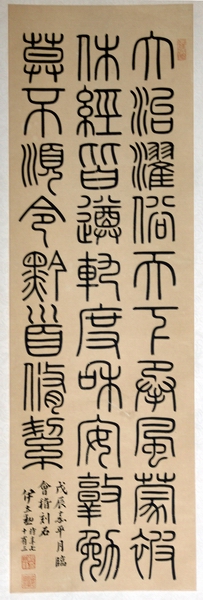 大治濯俗天下承風蒙被
休經皆遵軌度和安敦勉
莫不順令黔首脩絜
戊辰嘉平月臨
會稽刻石
伊立勳時年七十有三